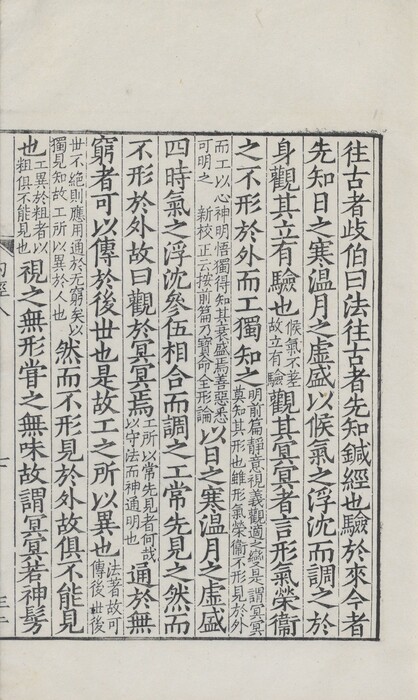 往古者歧伯曰法往古者先知鍼經也驗於來今者
先知日之寒温月之虛盛以候氣之浮沈而調之於
身觀其立有驗也候氣不差故立有驗觀其冥冥者言形氣榮衞
之不形於外而工獨知之明前篇靜意視義觀適之變是謂冥冥莫知其形也雖形氣榮衞不形見於外
而工以心神明悟獨得知其衰盛焉善惡悉可明之 新校正云按前篇乃寶命全形論以日之寒温月之虛盛
四時氣之浮沈參伍相合而調之工常先見之然而
不形於外故曰觀於冥冥焉工所以常先見者何哉以守法而神通明也通於無
窮者可以傳於後世也是故工之所以異也法著故可傳後世後
世不絶則應用通於無窮矣以獨見知故工所以異於人也然而不形見於外故俱不能見
也工異於粗者以粗俱不能見也視之無形甞之無味故謂冥冥若神髣